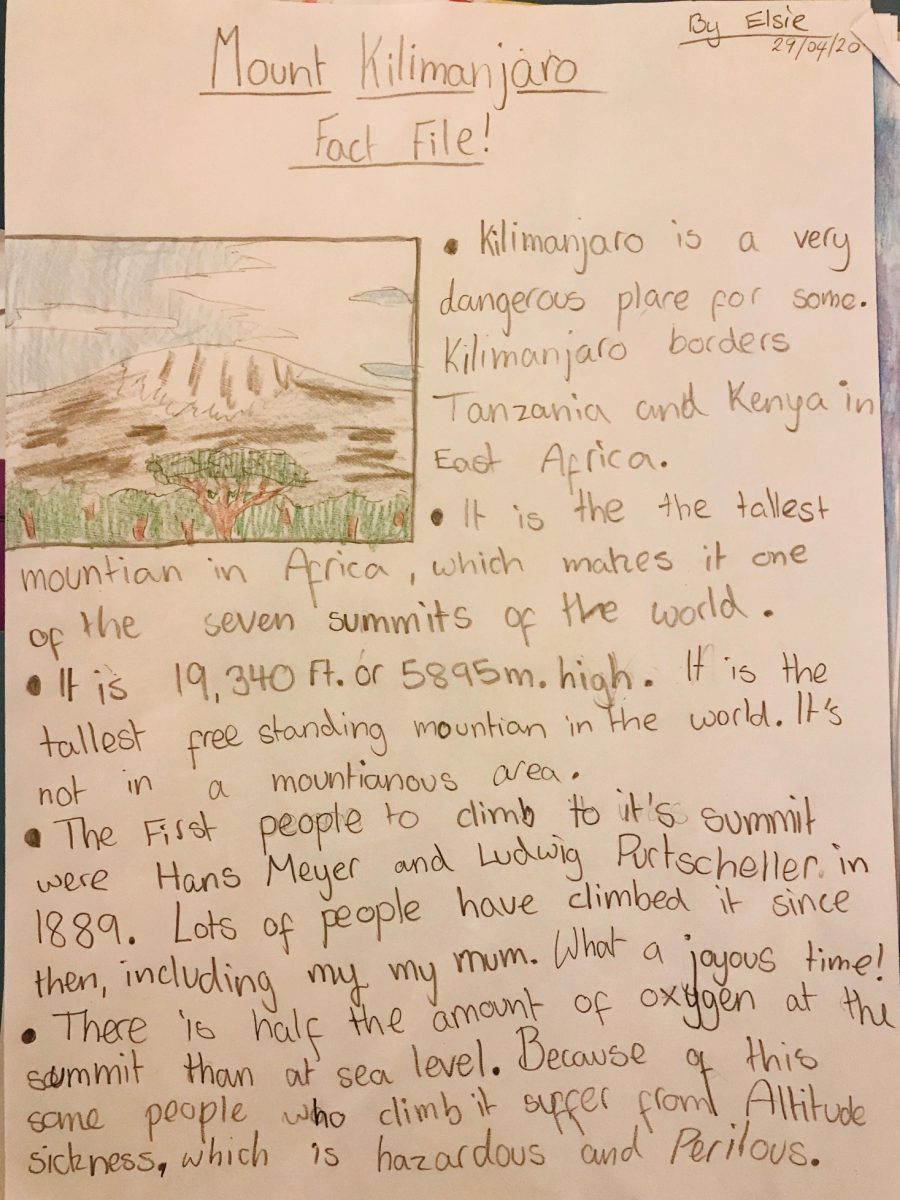 By Elsie
29/04/20
Mount Kilimanjaro
Fact File!
• Kilimanjaro is a very
dangerous plare for some.
Kilimanjaro borders
Tanzania and Kenya in
East Africa.
• It is the the tallest
mountian in Africa, which makes it one
of the seven summits of the world.
• It is 19,340 Ft. or 5895m. high. It is the
tallest free standing mountian in the world. It's
not in a mountianous area.
• The First people to climb to it's summit
were Hans Meyer and Ludwig Purtscheller in
1889. Lots of people have climbed it since
then, including my my mum. What a joyous time!
• There is half the amount of oxygen at the
summit than at sea level. Because of this
some people who climb it suffer from Altitude
sickness, which is hazardous and Perilous.